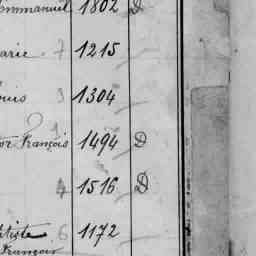 mmanuel 1802 D
arie 7 1215
ouis 3 1304
or François 1494 D
4 1516 D
ptiste 6 1172
François